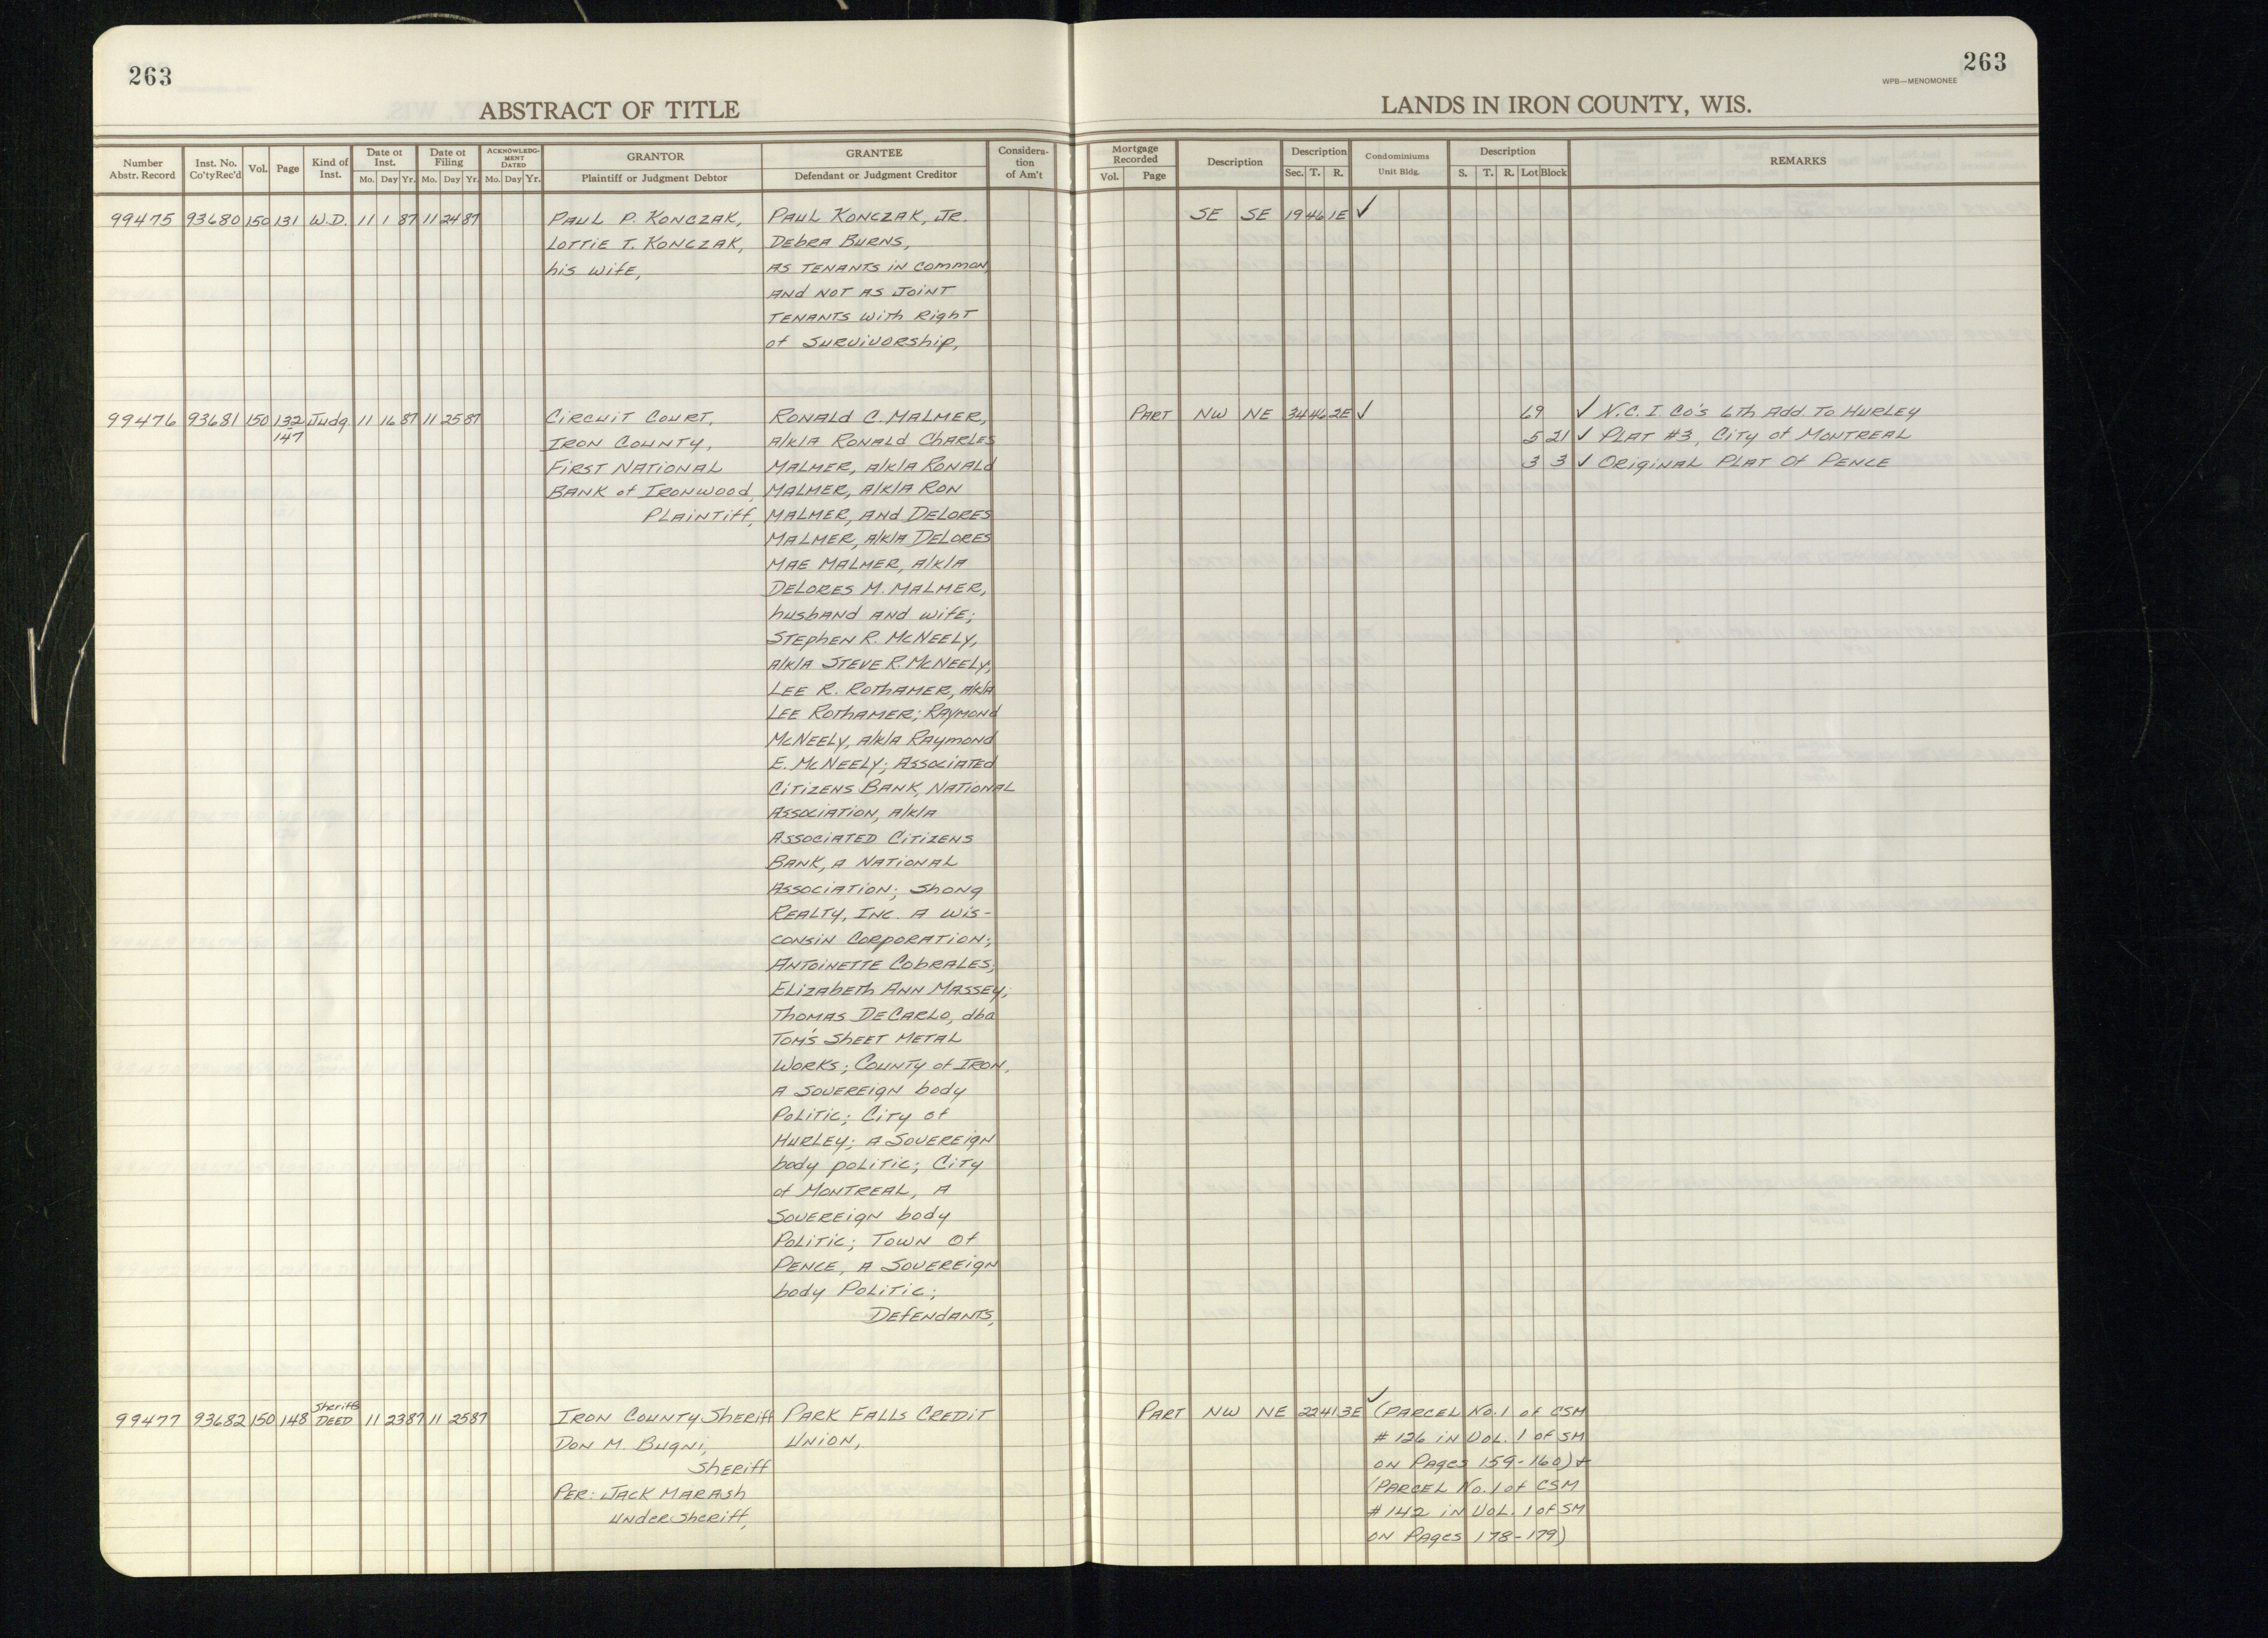 263
263
WPB—MENOMONEE
ABSTRACT OF TITLE
LANDS IN IRON COUNTY, WIS.
Number Abstr. Record
Inst. No. Co'ty Rec'd
Vol.
Page
Kind of Inst.
Date of Inst. Mo. Day Yr.
Date of Filing Mo. Day Yr.
ACKNOWLEDGMENT DATED Mo. Day Yr.
GRANTOR Plaintiff or Judgment Debtor
GRANTEE Defendant or Judgment Creditor
Consideration of Am't
Mortgage Recorded Vol. Page
Description
Description Sec. T. R.
Condominiums Unit Bldg.
Description S. T. R. Lot Block
REMARKS
99475 93680 150 131 W.D. 11 1 87 11 24 87 PAUL P. KONCZAK, PAUL KONCZAK, JR. SE SE 19 46 1E ✓
LOTTIE T. KONCZAK, DEBRA BURNS,
his wife, AS TENANTS IN COMMON,
AND NOT AS JOINT
TENANTS with Right
of SURVIVORship,
99476 93681 150 132 147 Judg. 11 16 87 11 25 87 CIRCUIT COURT, RONALD C. MALMER, PART NW NE 34 46 2E ✓ 69 ✓ N.C.I. CO'S 6th ADD. TO HURLEY
IRON COUNTY, A/K/A RONALD CHARLES 5 21 ✓ PLAT #3, CITY of MONTREAL
FIRST NATIONAL MALMER, A/K/A RONALD 3 3 ✓ ORIGINAL PLAT OF PENCE
BANK of IRONWOOD, MALMER, A/K/A RON
PLAINTIFF, MALMER, AND DELORES
MALMER, A/K/A DELORES
MAE MALMER, A/K/A
DELORES M. MALMER,
husbAND AND wife;
STEPHEN R. McNEELY,
A/K/A STEVE R. McNEELY;
LEE R. ROTHAMER, A/K/A
LEE ROTHAMER; RAYMOND
McNEELY, A/K/A RAYMOND
E. McNEELY; ASSOCIATED
CITIZENS BANK, NATIONAL
ASSOCIATION, A/K/A
ASSOCIATED CITIZENS
BANK, A NATIONAL
ASSOCIATION; SHONG
REALTY, INC. A WIS-
CONSIN CORPORATION;
ANTOINETTE COBRALES;
ELIZABETH ANN MASSEY;
THOMAS DECARLO, dba
TOM'S SHEET METAL
WORKS; COUNTY of IRON,
A SOVEREIGN body
POLITIC; CITY of
HURLEY; A SOVEREIGN
body POLITIC; CITY
of MONTREAL, A
SOVEREIGN body
POLITIC; TOWN Of
PENCE, A SOVEREIGN
body POLITIC;
DEFENDANTS,
99477 93682 150 148 Sheriffs DEED 11 23 87 11 25 87 IRON COUNTY SHERIFF PARK FALLS CREDIT PART NW NE 22 41 3E ✓ (PARCEL No. 1 of CSM
DON M. BUGNI, UNION, # 126 IN VOL. 1 OF SM
SHERIFF ON PAGES 159-160) +
PER: JACK MARASH (PARCEL No. 1 of CSM
UNDERSHERIFF, # 142 IN VOL. 1 OF SM
ON PAGES 178-179)